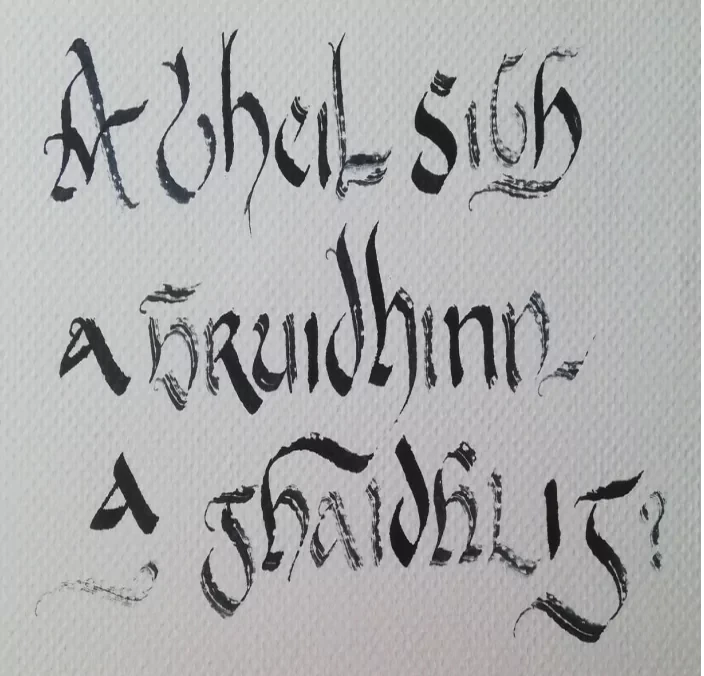 A bheil sibh
a bruidhinn
a ghaidhlig?